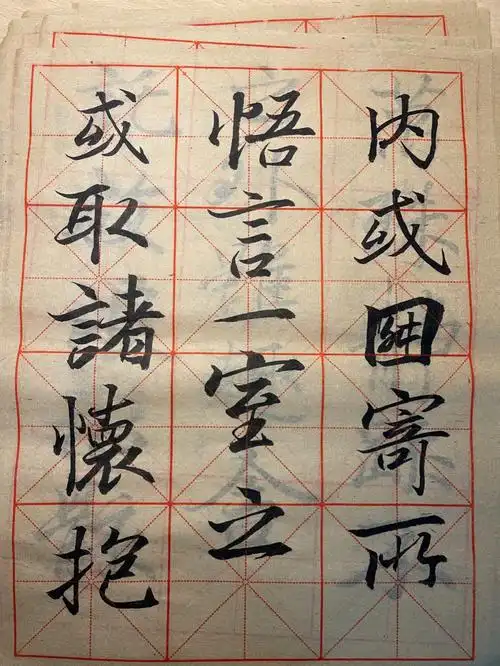 或取諸懷抱
悟言一室之
内或因寄所